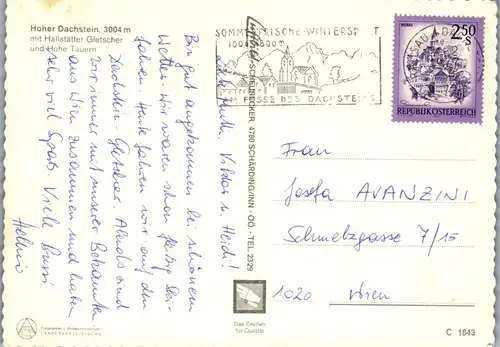 Hoher Dachstein, 3004 m
mit Hallstätter Gletscher
und Hohe Tauern
Bin gut angekommen bei schönem
Wetter. Wir waren schon fleißig
fahren. Heute fahren wir auf den
Dachstein-Gletscher. Abends sind
wir immer mit unserer Bekannten
aus Wien zusammen und haben
sehr viel Spaß. Viele Bussi
Helmi
Viktor u. Heidi!
SOMMERFRISCHE-WINTERSPORT
AM FUSSE DES DACHSTEINS
4780 SCHÄRDING/INN - OÖ. - TEL. 2329
2.50
S
REPUBLIK ÖSTERREICH
Frau
Josefa AVANZINI
Schmelzgasse 7/15
1020 Wien
Das Zeichen
für Qualität
C 1843